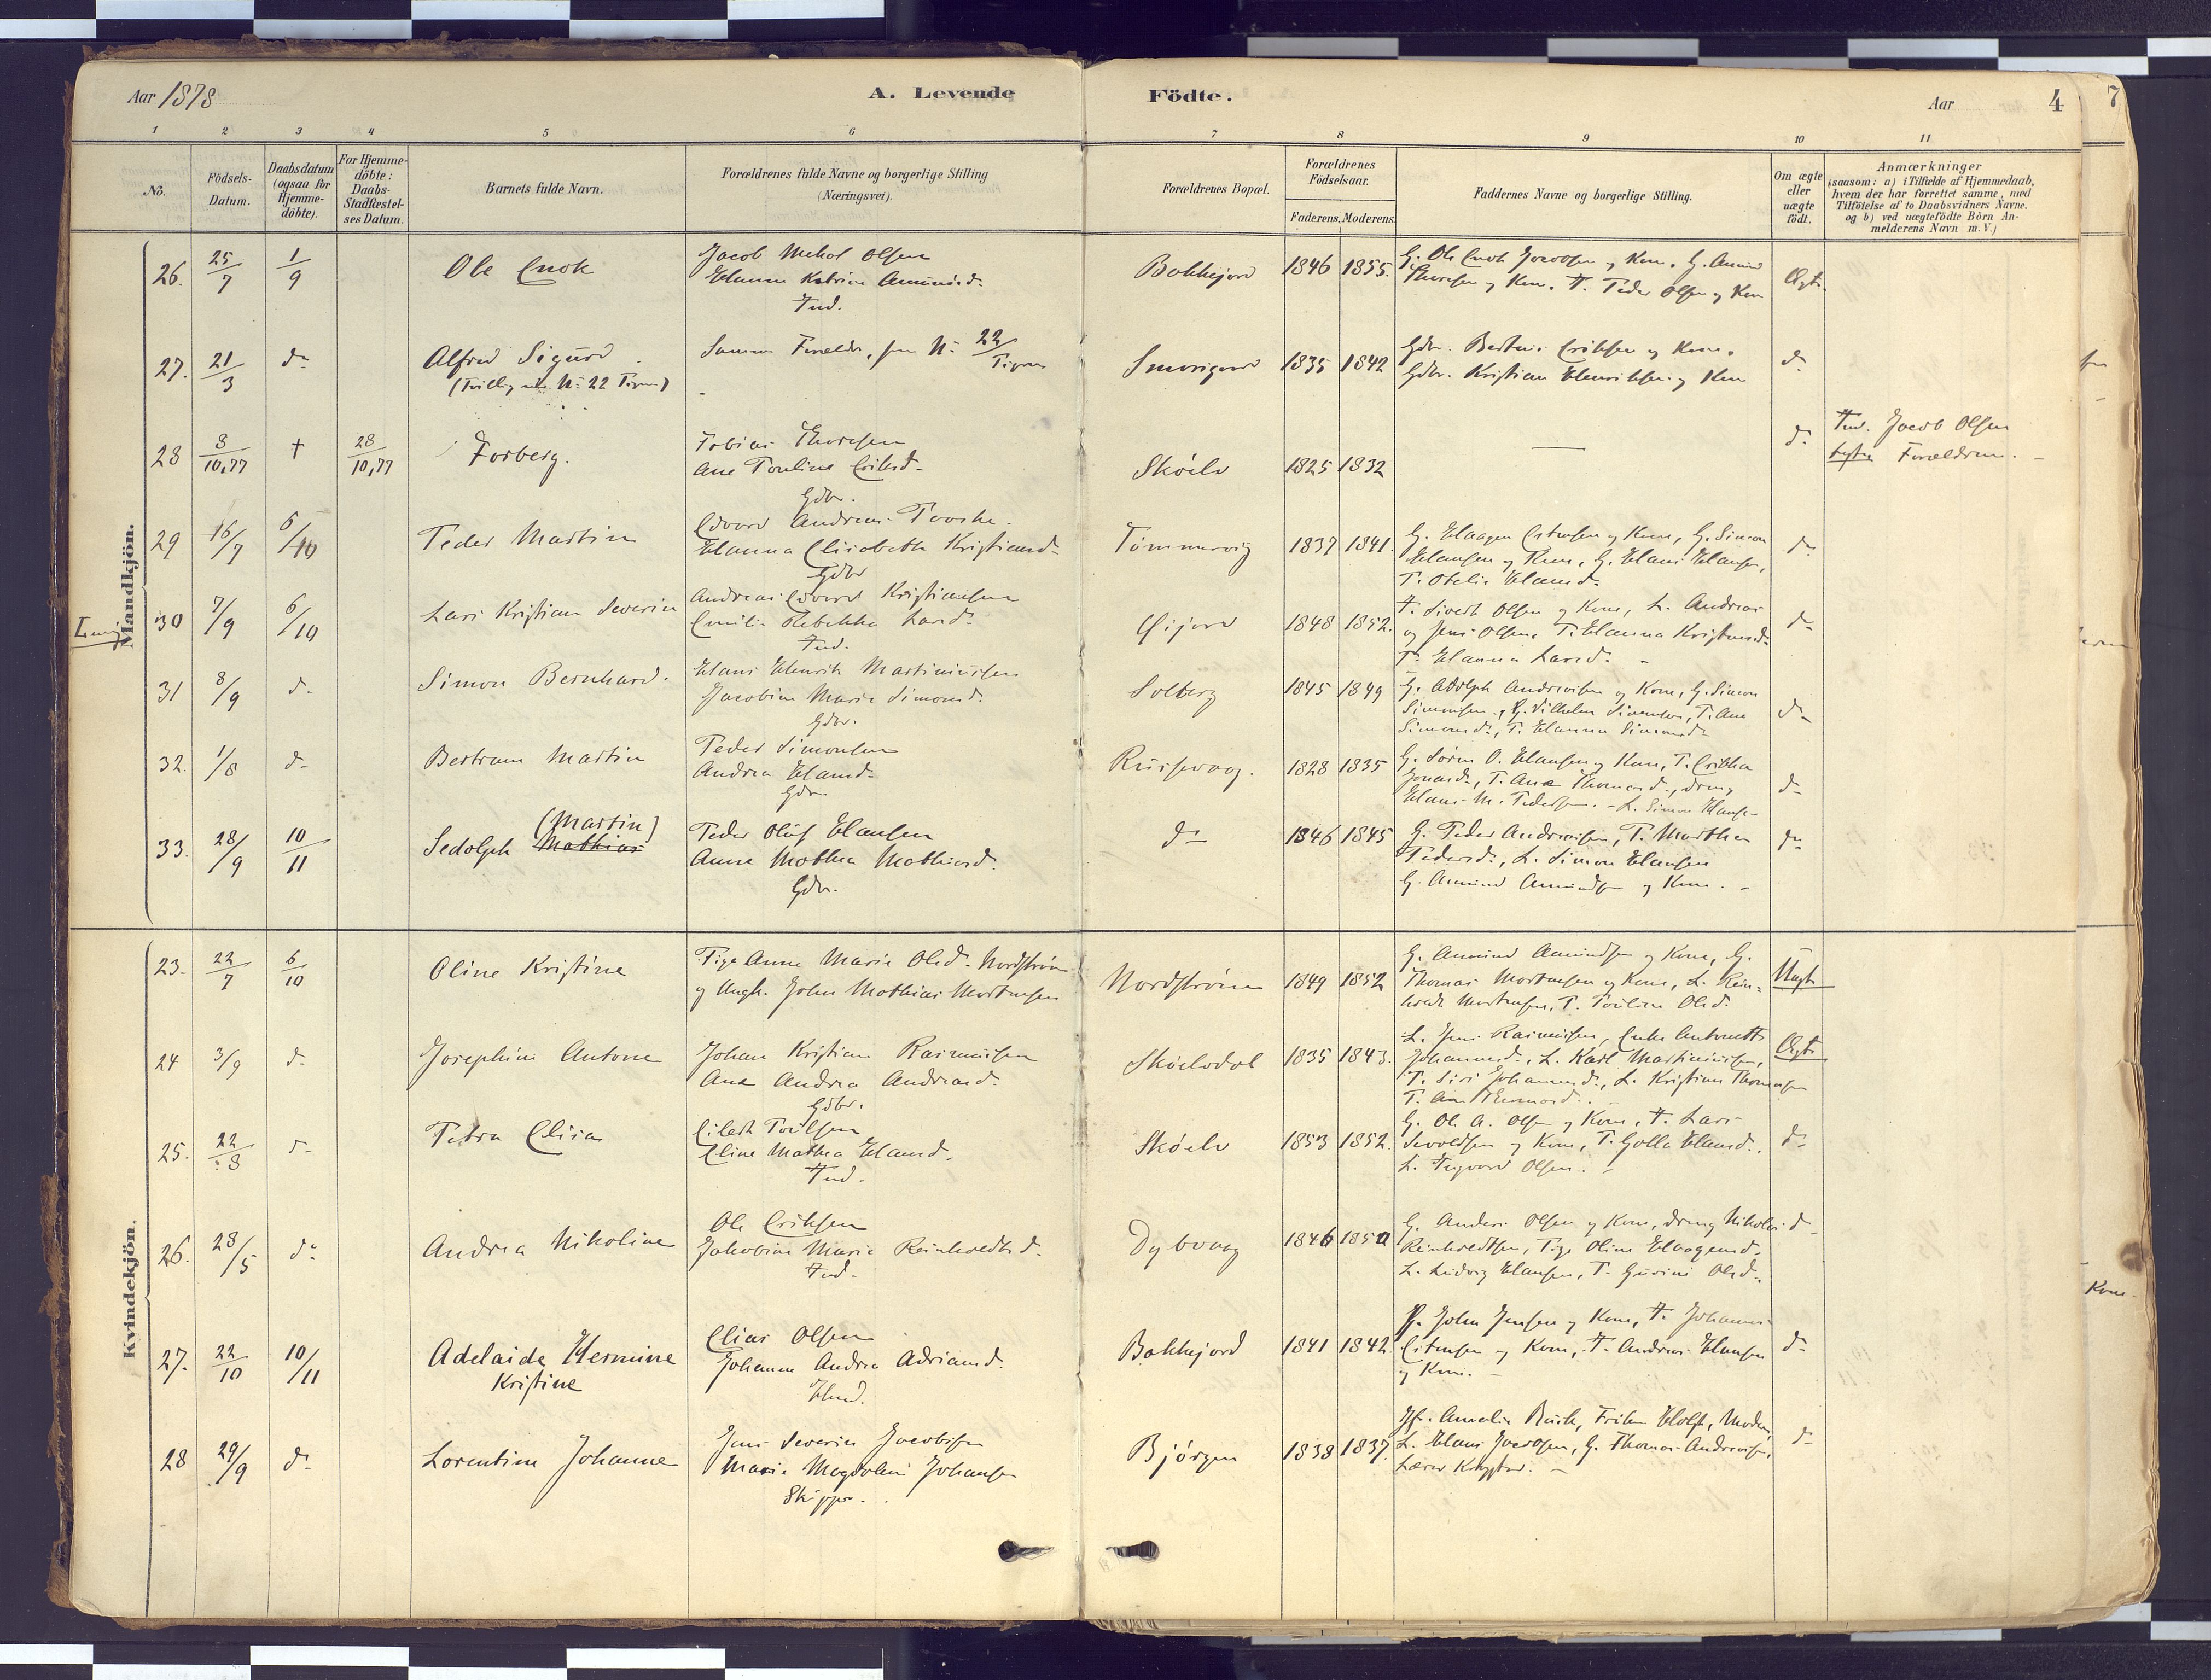 Aar 1878
A. Levende
Födte.
Aar
4
7
1 2 3 4 5 6 7 8 9 10 11
No.
Födsels-Datum.
Daabsdatum (ogsaa for Hjemmedöbte).
For Hjemmedöbte: Daabs-Stadfæstelses Datum.
Barnets fulde Navn.
Forældrenes fulde Navne og borgerlige Stilling
(Næringsvei).
Forældrenes Bopæl.
Forældrenes Födselsaar.
Faderens. Moderens.
Faddernes Navne og borgerlige Stilling.
Om ægte eller uægte födt.
Anmærkninger
(saasom: a) i Tilfælde af Hjemmedaab,
hvem der har forrettet samme, med
Tilföielse af to Daabsvidners Navne,
og b) ved uægtefödte Börn An-
melderens Navn m. V.)
Mandkjön.
26. 25/7 1/9 Ole Enok
Jacob Mekal Olsen
Hanna Katrina Amundsd.
Ind.
Bakkejord 1846 1855.
G. Ole Enok Jacobsen og Kone, G. Amund
Thoresen og Kone. I. Peder Olsen og Kone
Ægte.
27. 21/3 do Alfred Sigurd
(Tvilling med No 22 Piger)
Samme Forældre, som No 22 Piger
Smørsgaard 1835 1842
Gdbr. Eriksen og Kone.
Gdbr. Kristian Henriksen og Kone
do
28 8/10,77 † 28/10,77 Forberg.
Tobias Thoresen
Ane Pouline Eriksd.
Gdbr.
Skøelv 1825 1832
do
Ind. Jacob Olsen
Forældrene.
29 16/7 6/10 Peder Martin
Edvard Andreas
Hanna Elisabeth Kristiansd.
Gdbr
Tømmervig 1837 1841.
G. Haagen Estensen og Kone, G. Simon
Hansen og Kone, G. Hans Hansen,
P. Otelie Hansd.
do
30 7/9 6/10 Lars Kristian Severin
Andreas Edvard Kristiansen
Emilie Rebekka Larsd.
Ind.
Øijord 1848 1852.
I. Sivert Olsen og Kone, L. Andreas
og Jens Olsen, P. Hanna Kristiansd.
P. Hanna Larsd.
do
31 8/9 do Simon Bernhard.
Hans Henrik Martinussen
Jacobine Marie Simonsd.
Gdbr.
Solberg 1845 1849
G. Adolph Andreassen og Kone, G. Simon
Simonsen, G. Vilhelm Simonsen, P. Ane
Simonsd., P. Hanna Simonsd.
do
32. 1/8 do Bertram Martin
Peder Simonsen
Andrea Hansd.
Gdbr
Russevaag. 1828 1835
G. Søren O. Hansen og Kone, P. Erikka
Jonasd., P. Ane Thomasd., dreng
Hans M. Pedersen. - L. Simon Hansen
do
33. 28/9 10/11 Sedolph Mathias (Martin)
Peder Oluf Hansen
Anna Mathea Mathiasd.
Gdbr.
do 1846 1845
G. Peder Andreassen, P. Marthea
Pedersd., L. Simon Hansen
G. Amund Amundsen og Kone.
do
Kvindekjön.
23. 22/7 6/10 Oline Kristine
Pige Anne Marie Olsd. Nordstrøm
og Ungk. John Mathias Mortensen
Nordstrøm 1849 1852
G. Amund Amundsen og Kone, G.
Thomas Mortensen og Kone, L. Rein-
holdt Mortensen, P. Pouline Olsd.
Uægte
24 3/9 do Josephine Antone
Johan Kristian Rasmussen
Ane Andrea Andreasd.
Gdbr.
Skøelvdal 1835 1843.
L. Jens Rasmussen, Enke Antonette
Johannesd., L. Karl Martinussen,
P. Siri Johannesd., L. Kristian Thomassen
P. Ane Thomasd.
Ægte
25. 22/8 do Petra Elisa
Eilert Poulsen
Eline Mathea Hansd.
Ind.
Skøelv 1853 1852.
G. Ole A. Olsen og Kone, I. Lars
Sevaldsen og Kone, P. Golla Hansd.,
L. Ingvard Olsen.
do
26. 28/5 do Andrea Nikoline
Ole Eriksen
Jakobine Marie Reinholdtsd.
Ind.
Dybvaag 1846 1850
G. Anders Olsen og Kone, dreng Nikolai
Reinholdtsen, Pige Oline Haagensd.
L. Ludvig Hansen, P. Gurine Olsd.
do
27. 22/10 10/11 Adelaide Hermine
Kristine
Elias Olsen
Johanna Andrea Adriansd.
Ind.
Bakkejord 1841 1842.
G. John Jensen og Kone, I. Johannes
Estensen og Kone, I. Andreas Hansen
og Kone.
do
28 29/9 do Lorentine Johanne
Jens Severin Jacobsen
Marie Magdalene Johansen
Skipper.
Bjørgen 1838 1837.
Jfr. Amalie Buck, Frøken Holst, Moderen,
L. Hans Jacobsen, G. Thomas Andreassen,
Lærer
do
Kone.